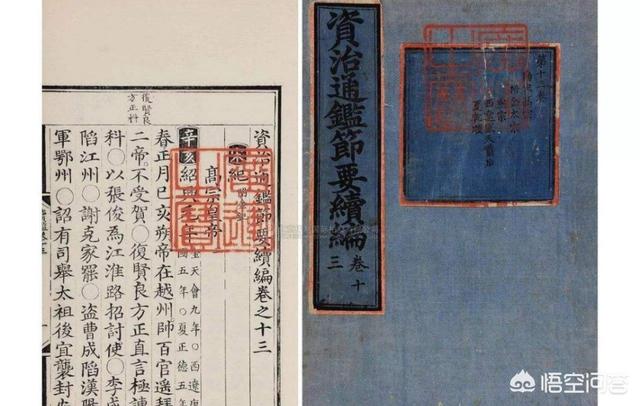 復賢良
方正科
資治通鑑節要續編卷之十三
宋紀
高宗皇帝
辛亥紹興
天會九年○西遼康
國五年○夏正德五年
春正月己亥朔帝在越州帥百官遙拜
二帝。不受賀○復賢良方正直言極諫
科○以張俊為江淮路招討使○李成
陷江州○謝克家罷○盜曹成陷漢陽
軍鄂州○詔有司舉太祖後宜襲封
資治通鑑節要續編
卷十三
第十三卷
悟空问答